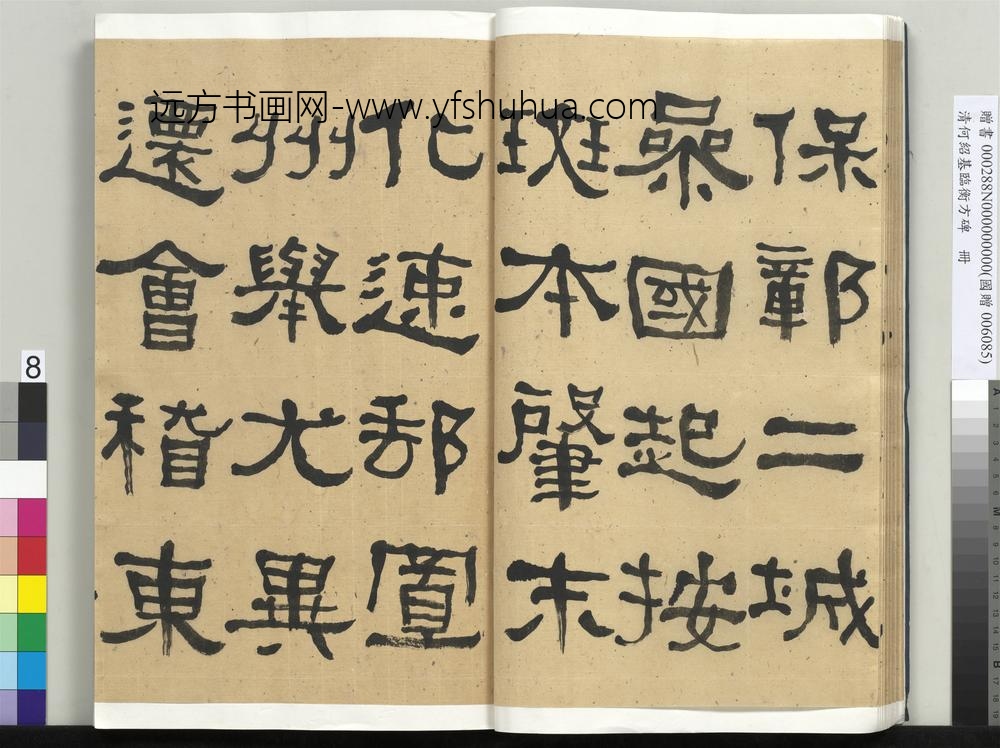 远方书画网-www.yfshuhua.com
保鄣二城
參國起按
斑本肇末
化速郵置
州舉尤異
還會稽東
贈書 000288N000000000(國贈 006085)
清何紹基臨衡方碑 冊
8